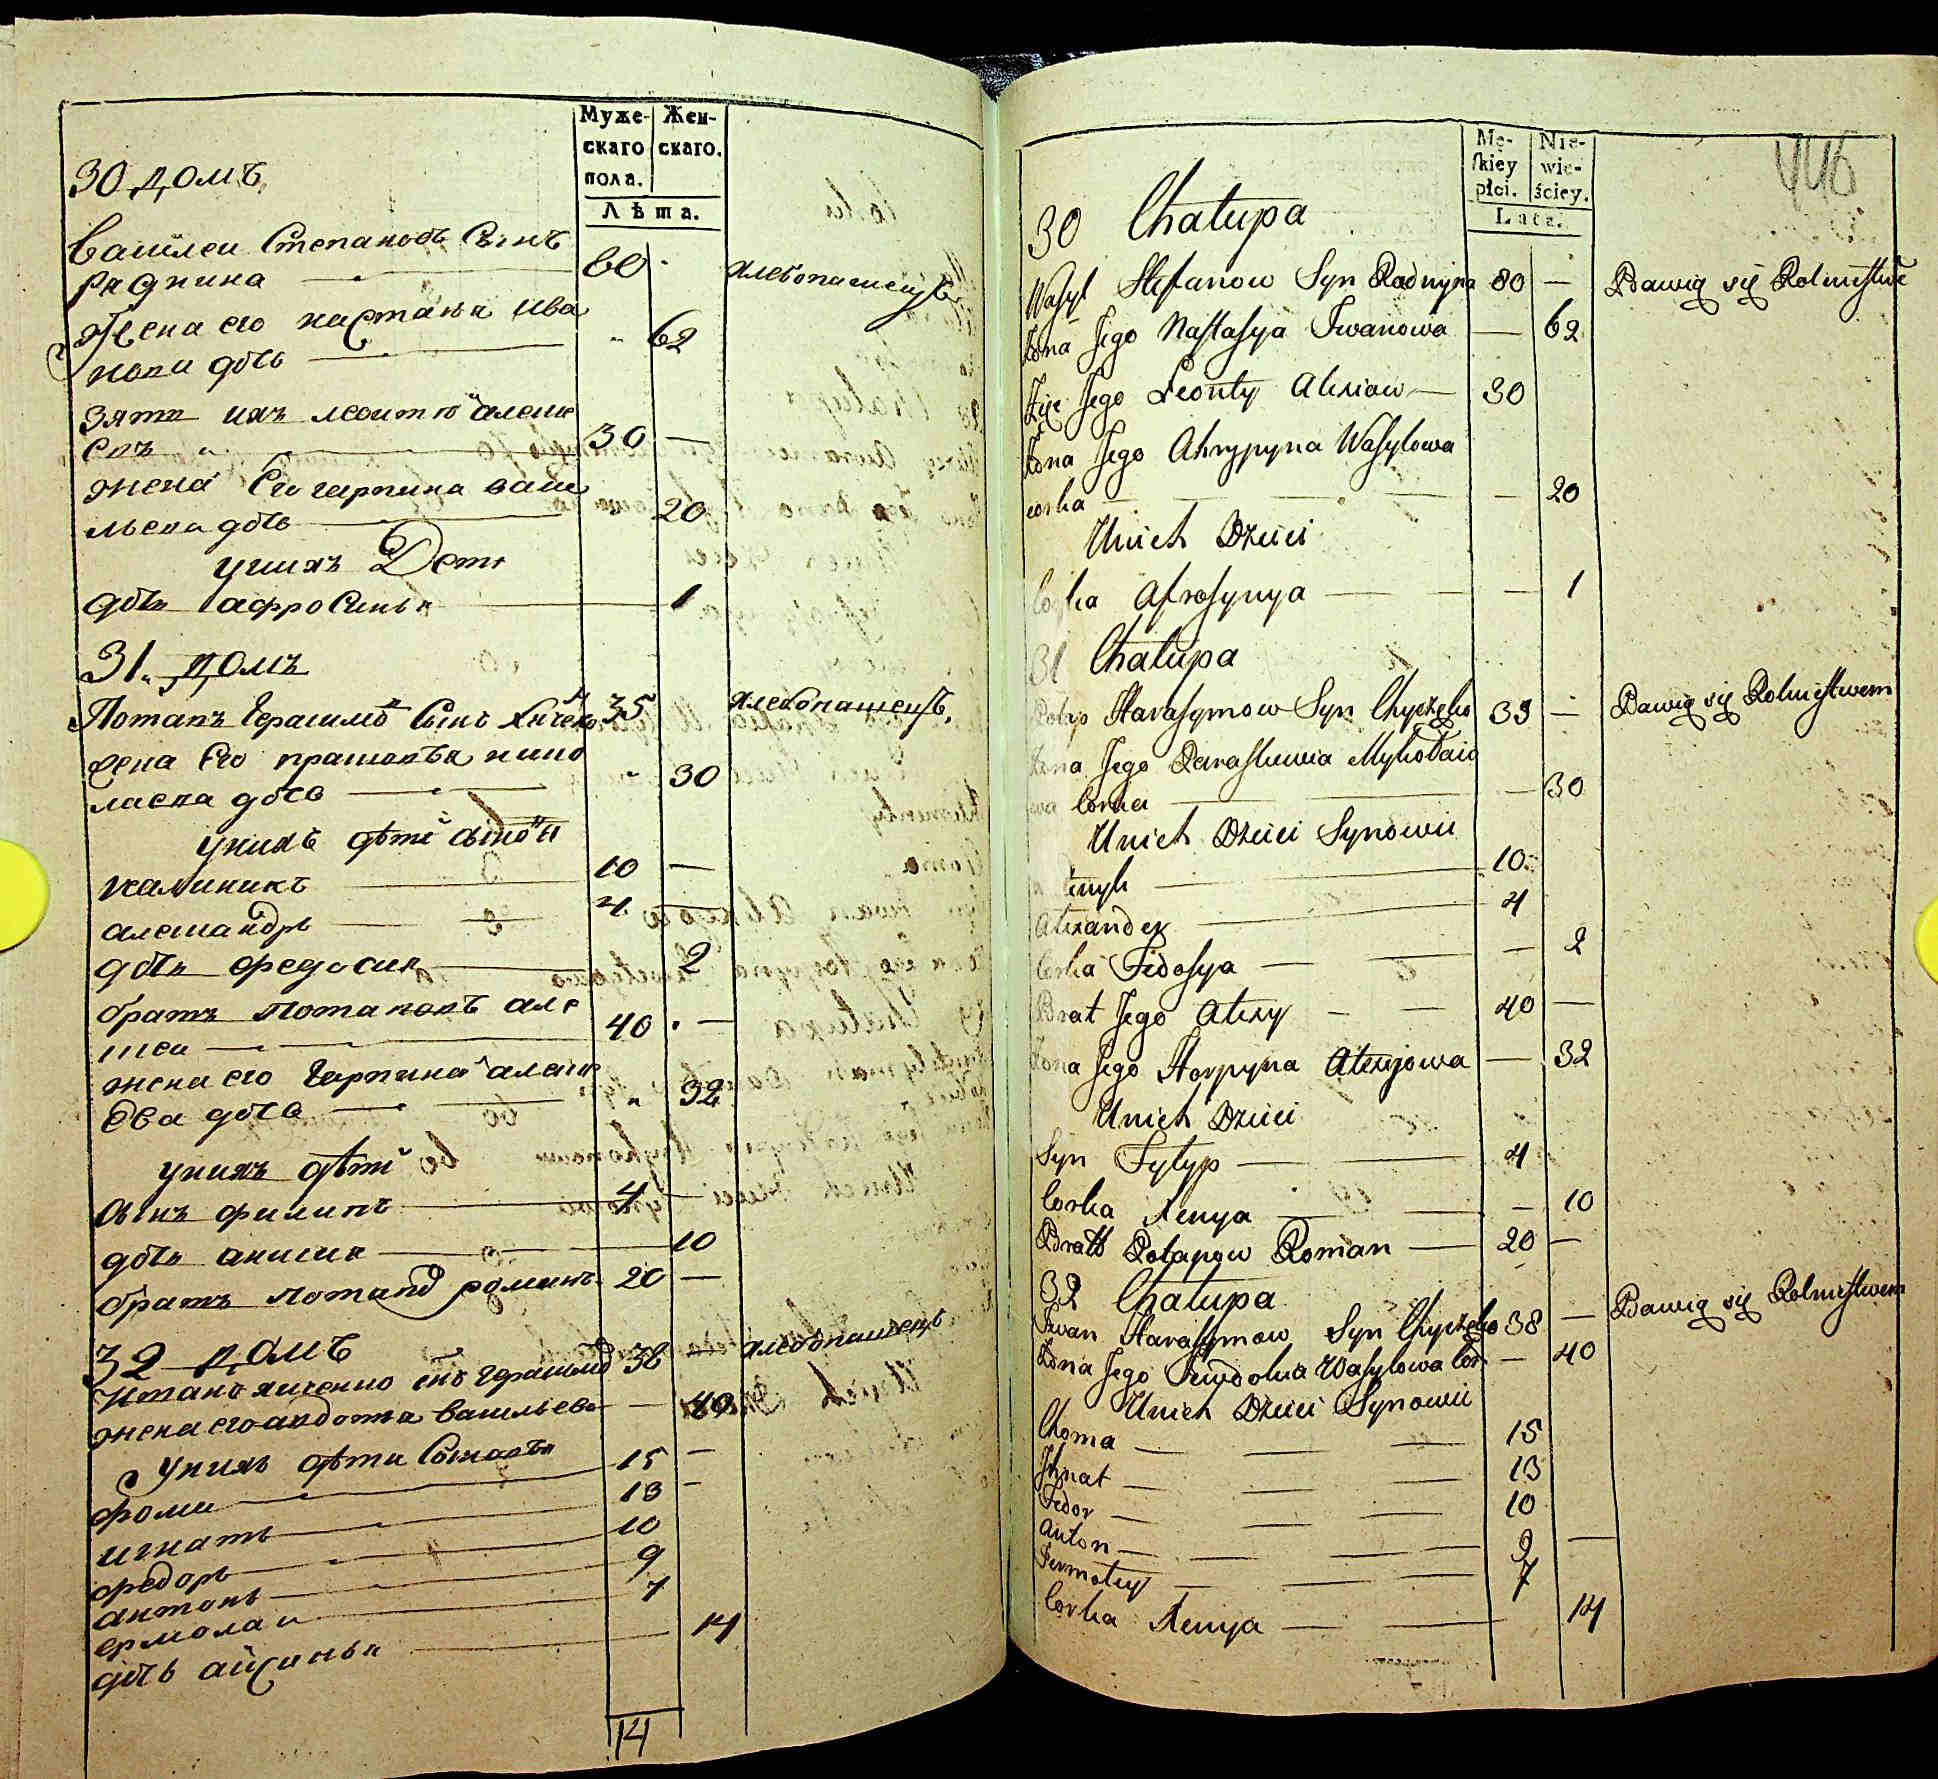 Муже-
скаго
пола.
Жен-
скаго.
Лѣта.
30 домъ
Василеи Степановъ Сынъ
Раднина 80 хлебопашецъ
Жена его настасья ива
нова дочь 62
зять ихъ леонтю алекс
30 —
жена Его гарпина васи
льева дочь 20
у нихъ Дети
дочь афросинья 1
31. домъ
Потапъ Герасимовъ Сынъ 35 хлебопашецъ.
жена Его прасковья нико
лаева дочь 30
у нихъ дѣти сыновья
калиникъ 10 —
александръ 4 —
дочь федосия 2
братъ потаповъ але
ксеи 40 —
жена его Гарпина алексе
ева дочь 32
у нихъ дѣти
сынъ филипъ 4 —
дочь аксиния 10
братъ потапов романъ 20 —
32 домъ
сынъ Герасимов 38 — хлебопашецъ
жена его авдотья васильева — 40
у нихъ дѣти Сыновья
фома 15 —
игнатъ 13 —
федоръ 10
антонъ 9
ермолаи 7
дочь аксинья 14
14
Mę-
skiey
płci.
Nie-
wie-
ściey.
Lata.
446
30 Chałupa
Wasyl Stefanow Syn Radnyna 80 — Bawią się Rolnistwe
Żona Jego Nastasya Iwanowa — 62
Zięć Jego Leonty Alexiow — 30
Żona Jego Ahrypyna Wasylowa
corka — 20
Unich Dzieci
Corka Afrosynya — 1
31 Chałupa
Potap Harasymow Syn 35 — Bawią się Rolnistwem
Żona Jego Paraskiewia Mykołaio
wa Corka — 30
Unich Dzieci Synowie
10
Alexander 4
Corka Fedosya — 2
Brat Jego Alexy 40 —
Żona Jego Horpyna Alexijowa — 32
Unich Dzieci
Syn Fylyp — 4
Corka Xenya — 10
Bratt Potapow Roman — 20 —
32 Chałupa
Iwan Harasymow Syn 38 — Bawią się Rolnistwem
Żona Jego Wasylowa Cor — 40
Unich Dzieci Synowie
Choma — 15
Ihnat — 13
Fedor — 10
Anton — 9 —
7
Corka Xenya — 14